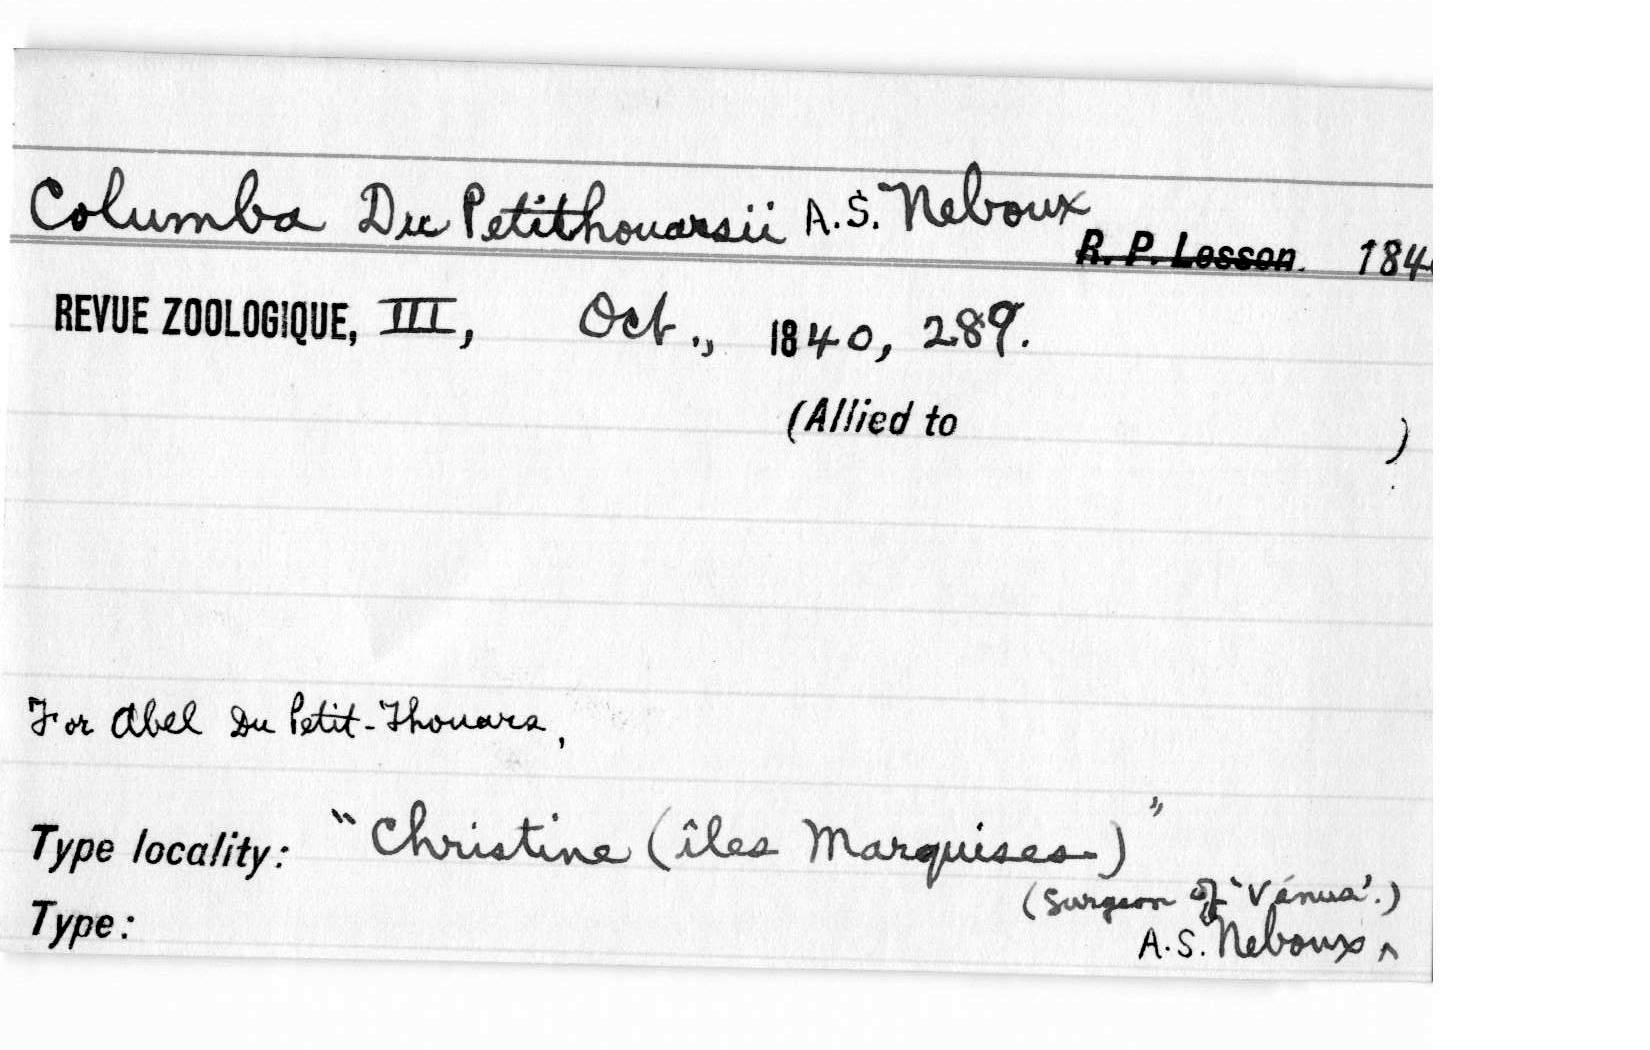 Columba Du Petithouarsii A.S. Neboux
R. P. Lesson. 184
REVUE ZOOLOGIQUE, III, Oct., 1840, 289.
(Allied to )
For Abel Du Petit-Thouars,
Type locality: "Christine (îles Marquises)"
(Surgeon of 'Vénus'.)
Type: A.S. Neboux ^